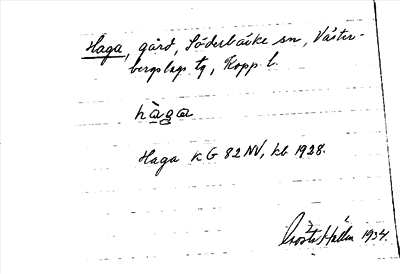 Haga, gård, Söderbärke sn, Väster-
bergslags tg, Kopp. l.
hàga
Haga kG 82 NV, kb 1928.
Hallén 1934.